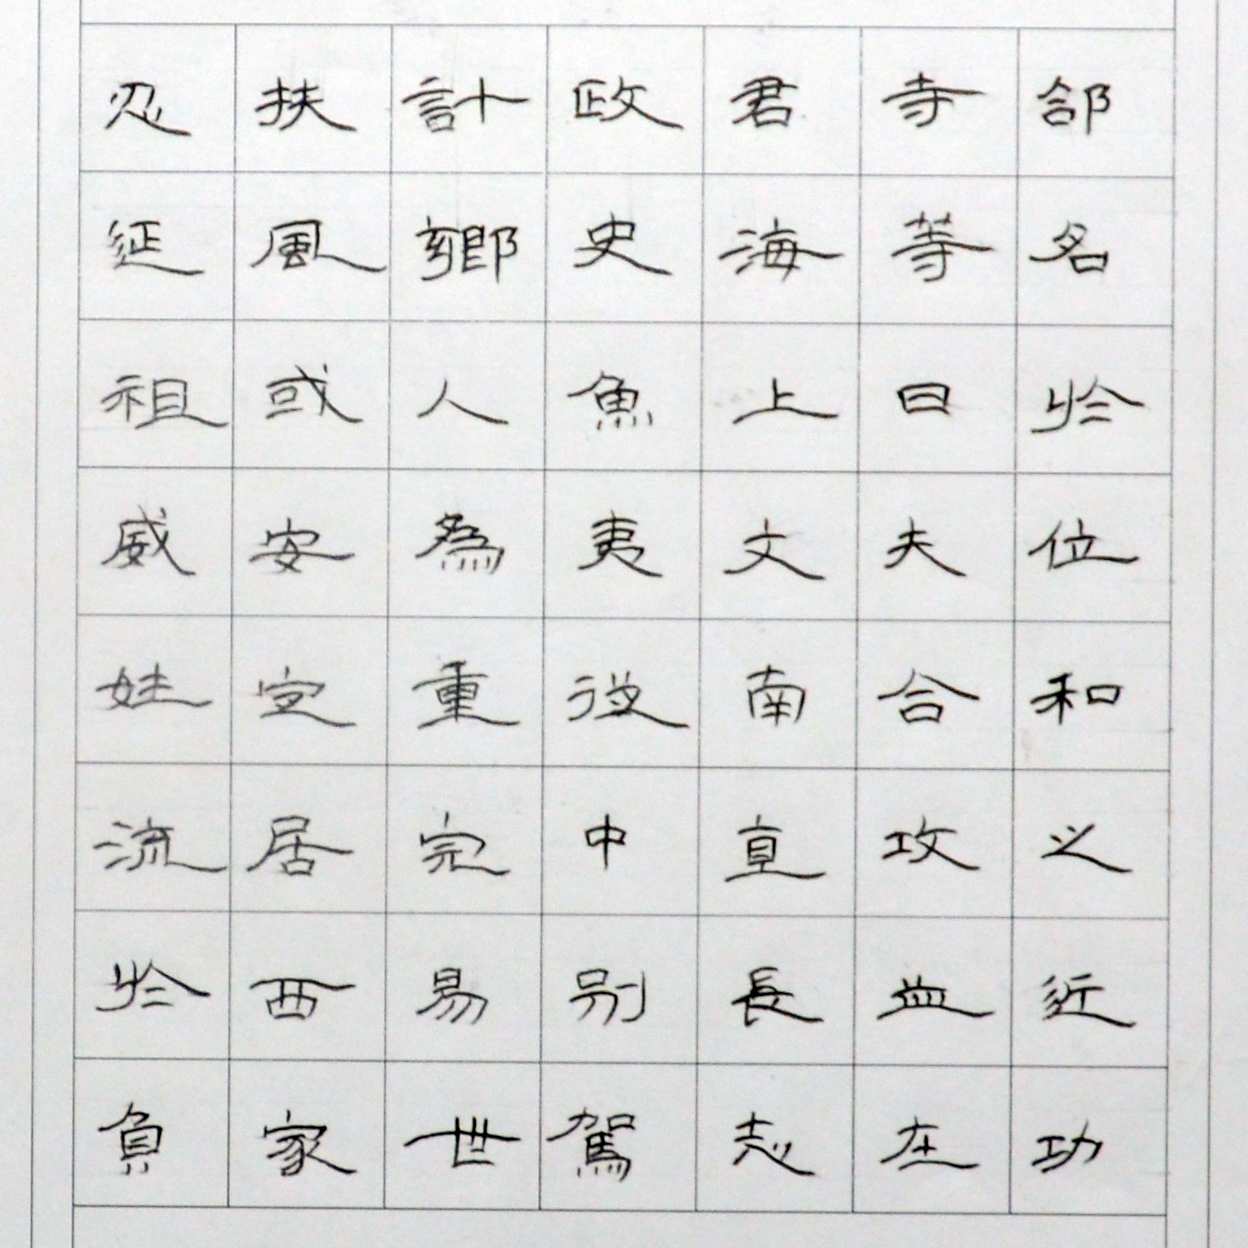 郃名於位和之近功
寺等曰夫合攻血在
君海上文南直長志
政史魚夷役中別駕
計鄉人為重完易世
扶風或安定居西家
忍延祖威娃流於負